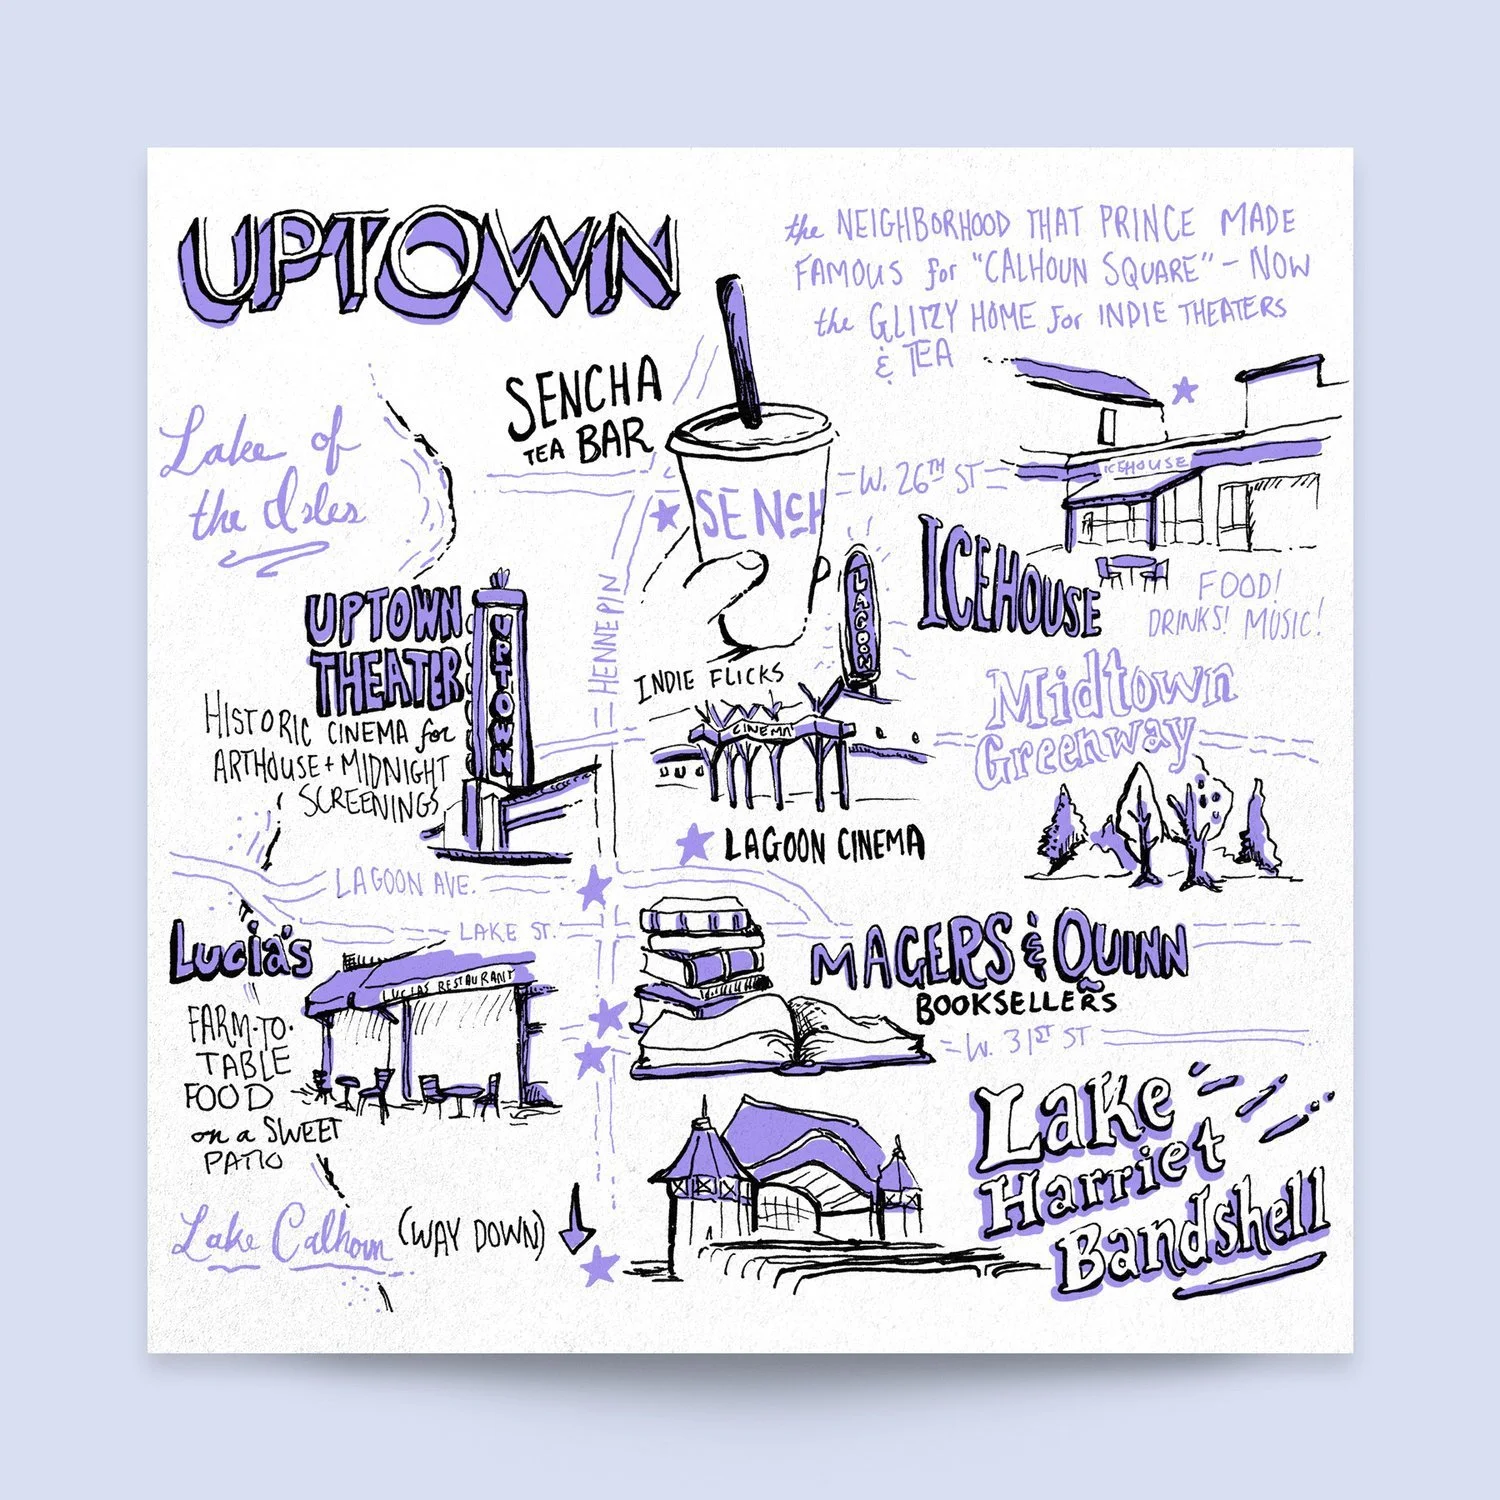 UPTOWN
the NEIGHBORHOOD THAT PRINCE MADE
FAMOUS for "CALHOUN SQUARE" - NOW
the GLITZY HOME for INDIE THEATERS
& TEA
SENCHA
TEA BAR
SENCH
Lake of
the Isles
W. 26TH ST
ICEHOUSE
ICEHOUSE
FOOD!
DRINKS! MUSIC!
HENNEPIN
UPTOWN
THEATER
UPTOWN
HISTORIC CINEMA for
ARTHOUSE + MIDNIGHT
SCREENINGS
LAGOON
INDIE FLICKS
CINEMA
LAGOON CINEMA
Midtown
Greenway
LAGOON AVE.
LAKE ST.
Lucia's
LUCIAS RESTAURANT
FARM-TO-
TABLE
FOOD
on a SWEET
PATIO
MAGERS & QUINN
BOOKSELLERS
W. 31ST ST
Lake
Harriet
Bandshell
Lake Calhoun (WAY DOWN)